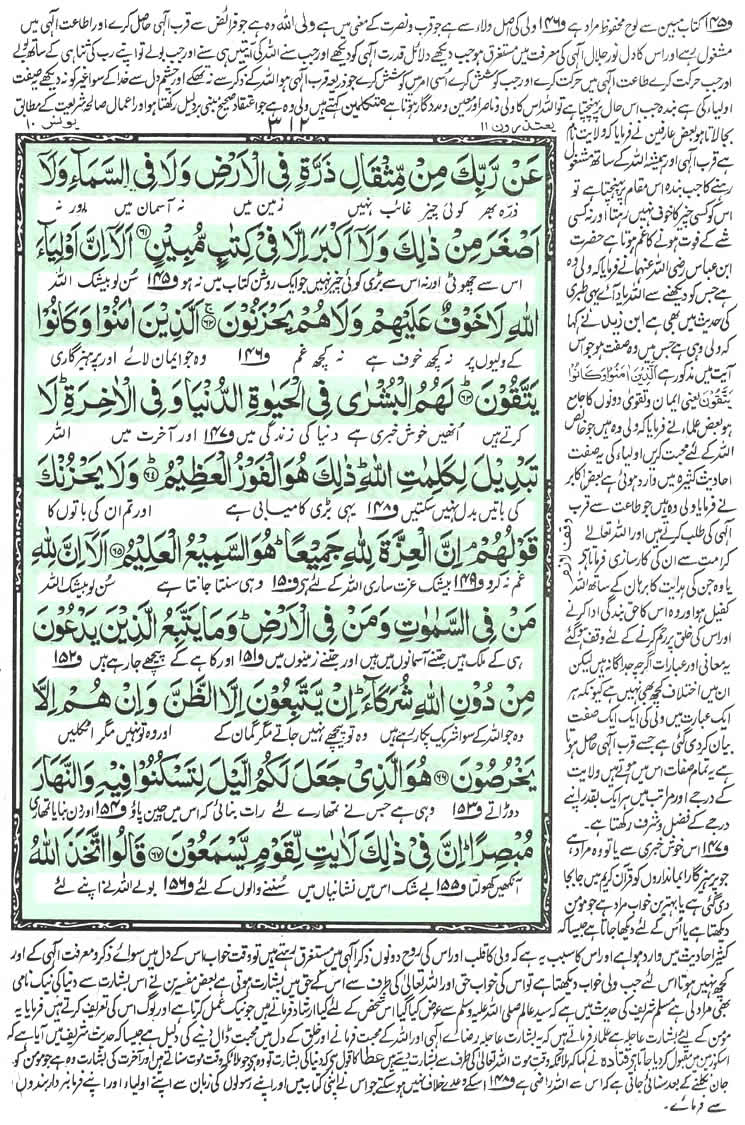 و۱۴۵ کتاب مبین سے لوح محفوظ مراد ہے و۱۴۶ ولی کی اصل ولاء سے ہے جو قرب و نصرت کے معنی میں ہے ولی اللہ وہ ہے جو فرائض سے قرب الٰہی حاصل کرے اور اطاعت الٰہی میں
مشغول رہے اور اس کا دل نور جلال الٰہی کی معرفت میں مستغرق ہو جب دیکھے دلائل قدرت الٰہی کو دیکھے اور جب سنے اللہ کی آیتیں ہی سنے اور جب بولے تو اپنے رب کی ثناہی کے ساتھ بولے
اور جب حرکت کرے طاعت الٰہی میں حرکت کرے اور جب کوشش کرے اسی امر میں کوشش کرے جو ذریعہ قرب الٰہی ہو اللہ کے ذکر سے نہ تھکے اور چشم دل سے خدا کے سوا غیر کو نہ دیکھے یہ صفت
اولیاء کی ہے بندہ جب اس حال پر پہنچتا ہے تو اللہ اس کا ولی و ناصر اور معین و مددگار ہوتا ہے متکلمین کہتے ہیں ولی وہ ہے جو اعتقاد صحیح مبنی بر دلیل رکھتا ہو اور اعمال صالحہ شریعت کے مطابق
یعتذرون ۱۱ ۳۱۲ یونس ۱۰
عَنْ رَّبِّكَ مِنْ مِّثْقَالِ ذَرَّةٍ فِی الْاَرْضِ وَلَا فِی السَّمَآءِ وَلَاۤ
ذرّہ بھر کوئی چیز غائب نہیں زمین میں نہ آسمان میں اور نہ
اَصْغَرَ مِنْ ذٰلِكَ وَلَاۤ اَكْبَرَ اِلَّا فِیْ كِتٰبٍ مُّبِیْنٍ ۶۱ اَلَاۤ اِنَّ اَوْلِیَآءَ
اس سے چھوٹی اور نہ اس سے بڑی کوئی چیز نہیں جو ایک روشن کتاب میں نہ ہو و۱۴۵ سُن لو بیشک اللہ
اللّٰهِ لَا خَوْفٌ عَلَیْهِمْ وَلَا هُمْ یَحْزَنُوْنَ ۶۲ اَلَّذِیْنَ اٰمَنُوْا وَكَانُوْا
کے ولیوں پر نہ کچھ خوف ہے نہ کچھ غم و۱۴۶ وہ جو ایمان لائے اور پرہیزگاری
یَتَّقُوْنَ ۶۳ لَهُمُ الْبُشْرٰی فِی الْحَیٰوةِ الدُّنْیَا وَفِی الْاٰخِرَةِ ؕ لَا
کرتے ہیں اُنھیں خوش خبری ہے دنیا کی زندگی میں و۱۴۷ اور آخرت میں اللہ
تَبْدِیْلَ لِكَلِمٰتِ اللّٰهِ ؕ ذٰلِكَ هُوَ الْفَوْزُ الْعَظِیْمُ ۶۴ وَلَا یَحْزُنْكَ
کی باتیں بدل نہیں سکتیں و۱۴۸ یہی بڑی کامیابی ہے اور تم ان کی باتوں کا
قَوْلُهُمْ ۘ اِنَّ الْعِزَّةَ لِلّٰهِ جَمِیْعًا ؕ هُوَ السَّمِیْعُ الْعَلِیْمُ ۶۵ اَلَاۤ اِنَّ لِلّٰهِ
غم نہ کرو و۱۴۹ بیشک عزت ساری اللہ کے لئے ہے و۱۵۰ وہی سنتا جانتا ہے سُن لو بیشک اللہ
مَنْ فِی السَّمٰوٰتِ وَمَنْ فِی الْاَرْضِ ؕ وَمَا یَتَّبِعُ الَّذِیْنَ یَدْعُوْنَ
ہی کے ملک ہیں جتنے آسمانوں میں ہیں اور جتنے زمینوں میں و۱۵۱ اور کاہے کے پیچھے جارہے ہیں و۱۵۲
مِنْ دُوْنِ اللّٰهِ شُرَكَآءَ ؕ اِنْ یَّتَّبِعُوْنَ اِلَّا الظَّنَّ وَاِنْ هُمْ اِلَّا
وہ جو اللہ کے سوا شریک پکار رہے ہیں وہ تو پیچھے نہیں جاتے مگر گمان کے اور وہ تو نہیں مگر اٹکلیں
یَخْرُصُوْنَ ۶۶ هُوَ الَّذِیْ جَعَلَ لَكُمُ الَّیْلَ لِتَسْكُنُوْا فِیْهِ وَالنَّهَارَ
دوڑاتے و۱۵۳ وہی ہے جس نے تمھارے لئے رات بنائی کہ اس میں چین پاؤ و۱۵۴ اور دن بنایا تمھاری
مُبْصِرًا ؕ اِنَّ فِیْ ذٰلِكَ لَاٰیٰتٍ لِّقَوْمٍ یَّسْمَعُوْنَ ۶۷ قَالُوا اتَّخَذَ اللّٰهُ
آنکھیں کھولتا و۱۵۵ بے شک اس میں نشانیاں ہیں سُننے والوں کے لئے و۱۵۶ بولے اللہ نے اپنے لئے
بجالاتا ہو بعض عارفین نے فرمایا کہ ولایت نام
ہے قرب الٰہی اور ہمیشہ اللہ کے ساتھ مشغول
رہنے کا جب بندہ اس مقام پر پہنچتا ہے تو
اس کو کسی چیز کا خوف نہیں رہتا اور نہ کسی
شے کے فوت ہونے کا غم ہوتا ہے حضرت
ابن عباس رضی اللہ عنہما نے فرمایا کہ ولی وہ
ہے جس کو دیکھنے سے اللہ یاد آئے یہی طبری
کی حدیث میں بھی ہے ابن زید نے کہا
کہ ولی وہی ہے جس میں وہ صفت ہو جو اس
آیت میں مذکور ہے اَلَّذِیْنَ اٰمَنُوْا وَكَانُوْا
یَتَّقُوْنَ یعنی ایمان و تقویٰ دونوں کا جامع
ہو بعض علماء نے فرمایا کہ ولی وہ ہیں جو خالص
اللہ کے لئے محبت کریں اولیاء کی یہ صفت
احادیث کثیرہ میں وارد ہوئی ہے بعض اکابر
نے فرمایا ولی وہ ہیں جو طاعت سے قرب
الٰہی کی طلب کرتے ہیں اور اللہ تعالےٰ
کرامت سے ان کی کارسازی فرماتا ہے
یا وہ جن کی ہدایت کا برہان کے ساتھ اللہ
کفیل ہو اور وہ اس کا حق بندگی ادا کرنے
اور اس کی خلق پر رحم کرنے کے لئے وقف ہو گئے
یہ معانی اور عبارات اگرچہ جداگانہ ہیں لیکن
ان میں اختلاف کچھ بھی نہیں ہے کیونکہ ہر
ایک عبارت میں ولی کی ایک ایک صفت
بیان کر دی گئی ہے جسے قرب الٰہی حاصل ہوتا
ہے یہ تمام صفات اس میں ہوتے ہیں ولایت
کے درجے اور مراتب میں ہر ایک بقدر اپنے
درجے کے فضل و شرف رکھتا ہے۔
و۱۴۷ اس خوش خبری سے یا تو وہ مراد ہے
جو پرہیزگار ایمانداروں کو قرآن کریم میں جابجا
دی گئی ہے یا بہترین خواب مراد ہے جو مومن
دیکھتا ہے یا اس کے لئے دیکھا جاتا ہے جیسا کہ
وقف لازم
کثیر احادیث میں وارد ہوا ہے اور اس کا سبب یہ ہے کہ ولی کا قلب اور اس کی روح دونوں ذکر الٰہی میں مستغرق رہتے ہیں تو وقت خواب اس کے دل میں سوائے ذکر و معرفت الٰہی کے اور
کچھ نہیں ہوتا اس لئے جب ولی خواب دیکھتا ہے تو اس کی خواب حق اور اللہ تعالیٰ کی طرف سے اس کے حق میں بشارت ہوتی ہے بعض مفسرین نے اس بشارت سے دنیا کی نیک نامی
بھی مراد لی ہے مسلم شریف کی حدیث میں ہے کہ سید عالم صلی اللہ علیہ وسلم سے عرض کیا گیا اس شخص کے لئے کیا ارشاد فرماتے ہیں جو نیک عمل کرتا ہے اور لوگ اس کی تعریف کرتے ہیں فرمایا یہ
مومن کے لئے بشارت عاجلہ ہے علماء فرماتے ہیں کہ یہ بشارت عاجلہ رضائے الٰہی اور اللہ کے محبت فرمانے اور خلق کے دل میں محبت ڈال دینے کی دلیل ہے جیسا کہ حدیث شریف میں آیا ہے کہ
اسکو زمین میں مقبول کر دیا جاتا ہے قتادہ نے کہا کہ ملائکہ وقت موت اللہ تعالیٰ کی طرف سے بشارت دیتے ہیں عطا کا قول ہے کہ دنیا کی بشارت تو وہ ہے جو ملائکہ وقت موت سناتے ہیں اور آخرت کی بشارت وہ ہے جو مومن کو
جان نکلنے کے بعد سنائی جاتی ہے کہ اس سے اللہ راضی ہے و۱۴۸ اسکے وعدے خلاف نہیں ہو سکتے جو اس نے اپنی کتاب میں اور اپنے رسولوں کی زبان سے اپنے اولیاء اور اپنے فرمانبردار بندوں
سے فرمائے۔